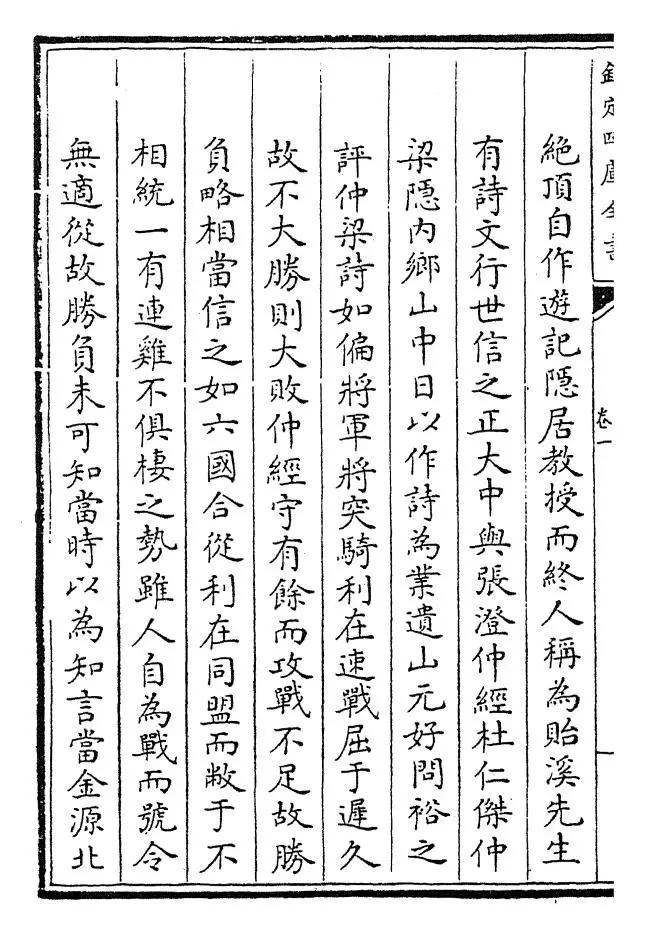 欽定四庫全書
卷一
絶頂自作遊記隠居教授而終人稱為貽溪先生
有詩文行世信之正大中與張澄仲經杜仁傑仲
梁隠内鄉山中日以作詩為業遺山元好問裕之
評仲梁詩如偏將軍將突騎利在速戰屈于遲久
故不大勝則大敗仲經守有餘而攻戰不足故勝
負略相當信之如六國合從利在同盟而敝于不
相統一有連雞不俱棲之勢雖人自為戰而號令
無適從故勝負未可知當時以為知言當金源北